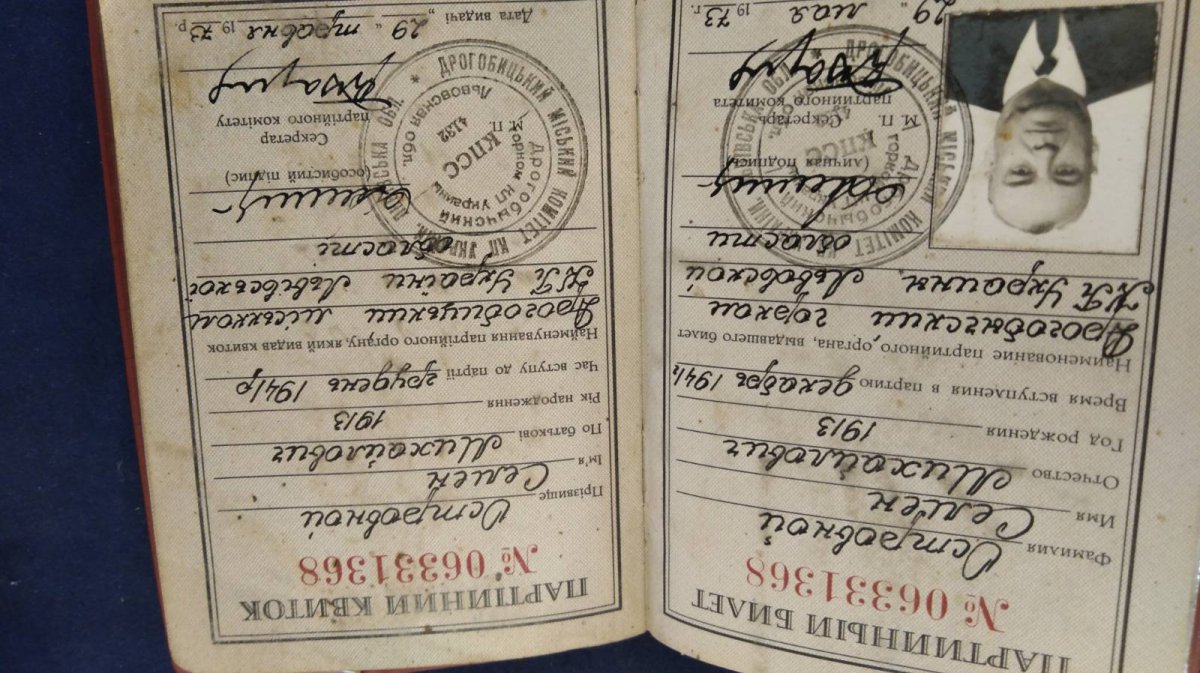 ПАРТИЙНЫЙ БИЛЕТ
№ 06331368
Фамилия Островной
Имя Семен
Отчество Михайлович
Год рождения 1913
Время вступления в партию декабрь 1941г
Наименование партийного органа, выдавшего билет
Дрогобычский горком
КП Украины, Львовской
области
(личная подпись)
М. П. Секретарь
партийного комитета
29 мая 1973 г.
ПАРТІЙНИЙ КВИТОК
№ 06331368
Прізвище Островной
Ім'я Семен
По батькові Михайлович
Рік народження 1913
Час вступу до партії грудень 1941р
Найменування партійного органу, який видав квиток
Дрогобицький міськком
КП України Львівської
області
(особистий підпис)
М. П. Секретар
партійного комітету
Дата видачі „29“ травня 1973 р.
ДРОГОБИЦЬКИЙ МІСЬКИЙ КОМІТЕТ КП УКРАЇНИ, ЛЬВІВСЬКА ОБЛ.
Дрогобычский горком КП Украины Львовская обл.
КПСС
4132